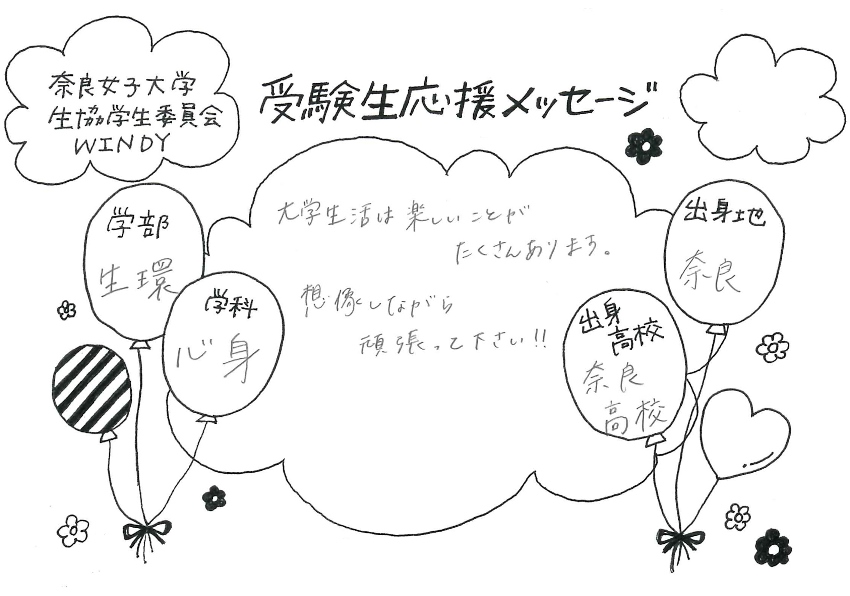 奈良女子大学
生協学生委員会
WINDY
受験生応援メッセージ
学部
生環
学科
心身
大学生活は楽しいことが
たくさんあります。
想像しながら
頑張って下さい!!
出身地
奈良
出身
高校
奈良
高校